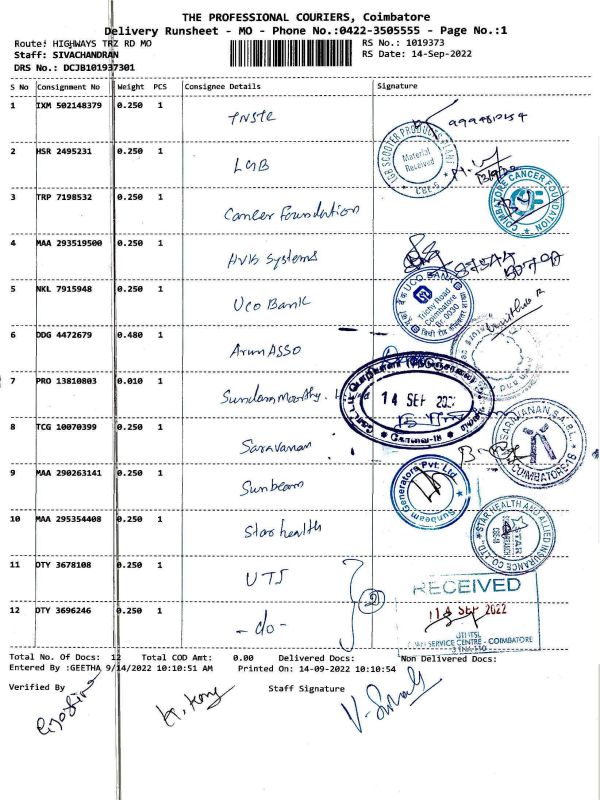 THE PROFESSIONAL COURIERS, Coimbatore
Delivery Runsheet - MO - Phone No.:0422-3505555 - Page No.:1
Route: HIGHWAYS TRZ RD MO
RS No.: 1019373
Staff: SIVACHANDRAN
RS Date: 14-Sep-2022
DRS No.: DCJB101937301
S No Consignment No Weight PCS Consignee Details Signature
1 IXM 502148379 0.250 1 TNSTC
2 HSR 2495231 0.250 1 LGB
LGB SCOOTER PRODUCTS PLANT
Material Received
CBE-5
3 TRP 7198532 0.250 1 Cancer Foundation
COIMBATORE CANCER FOUNDATION
4 MAA 293519500 0.250 1 HVK Systems
5 NKL 7915948 0.250 1 UCO Bank
UCO BANK
Trichy Road
Coimbatore
Br. 0030
6 DDG 4472679 0.480 1 Arun ASSO
7 PRO 13810803 0.010 1 Sundaramoorthy
14 SEP 202
கோவை-18
8 TCG 10070399 0.250 1 Saravanan
SARAVANAN, B.A., B.L.
COIMBATORE-18
9 MAA 290263141 0.250 1 Sunbeam
Sunbeam Generators Pvt. Ltd
10 MAA 295354408 0.250 1 Star health
STAR HEALTH AND ALLIED INSURANCE CO. LTD.
STAR
11 DTY 3678108 0.250 1 UTS
2
RECEIVED
12 DTY 3696246 0.250 1 -do-
14 SEP 2022
SERVICE CENTRE - COIMBATORE
Total No. Of Docs: 12 Total COD Amt: 0.00 Delivered Docs: Non Delivered Docs:
Entered By :GEETHA 9/14/2022 10:10:51 AM Printed On: 14-09-2022 10:10:54
Verified By Staff Signature